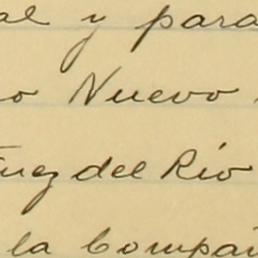 al y para
o Nuevo
ñez del Río
la Compañ